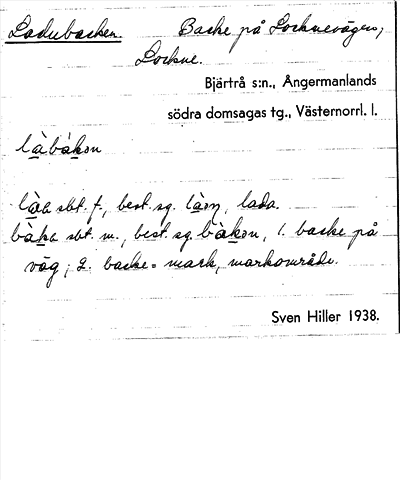 Ladubacken. Backe på Locknevägen,
Lockne.
Bjärtrå s:n., Ångermanlands
södra domsagas tg., Västernorrl. l.
làbàkən
làa sbt. f., best. sg. làən, lada.
bàka sbt. m., best. sg. bàkən, 1. backe på
väg; 2. backe = mark, markområde.
Sven Hiller 1938.